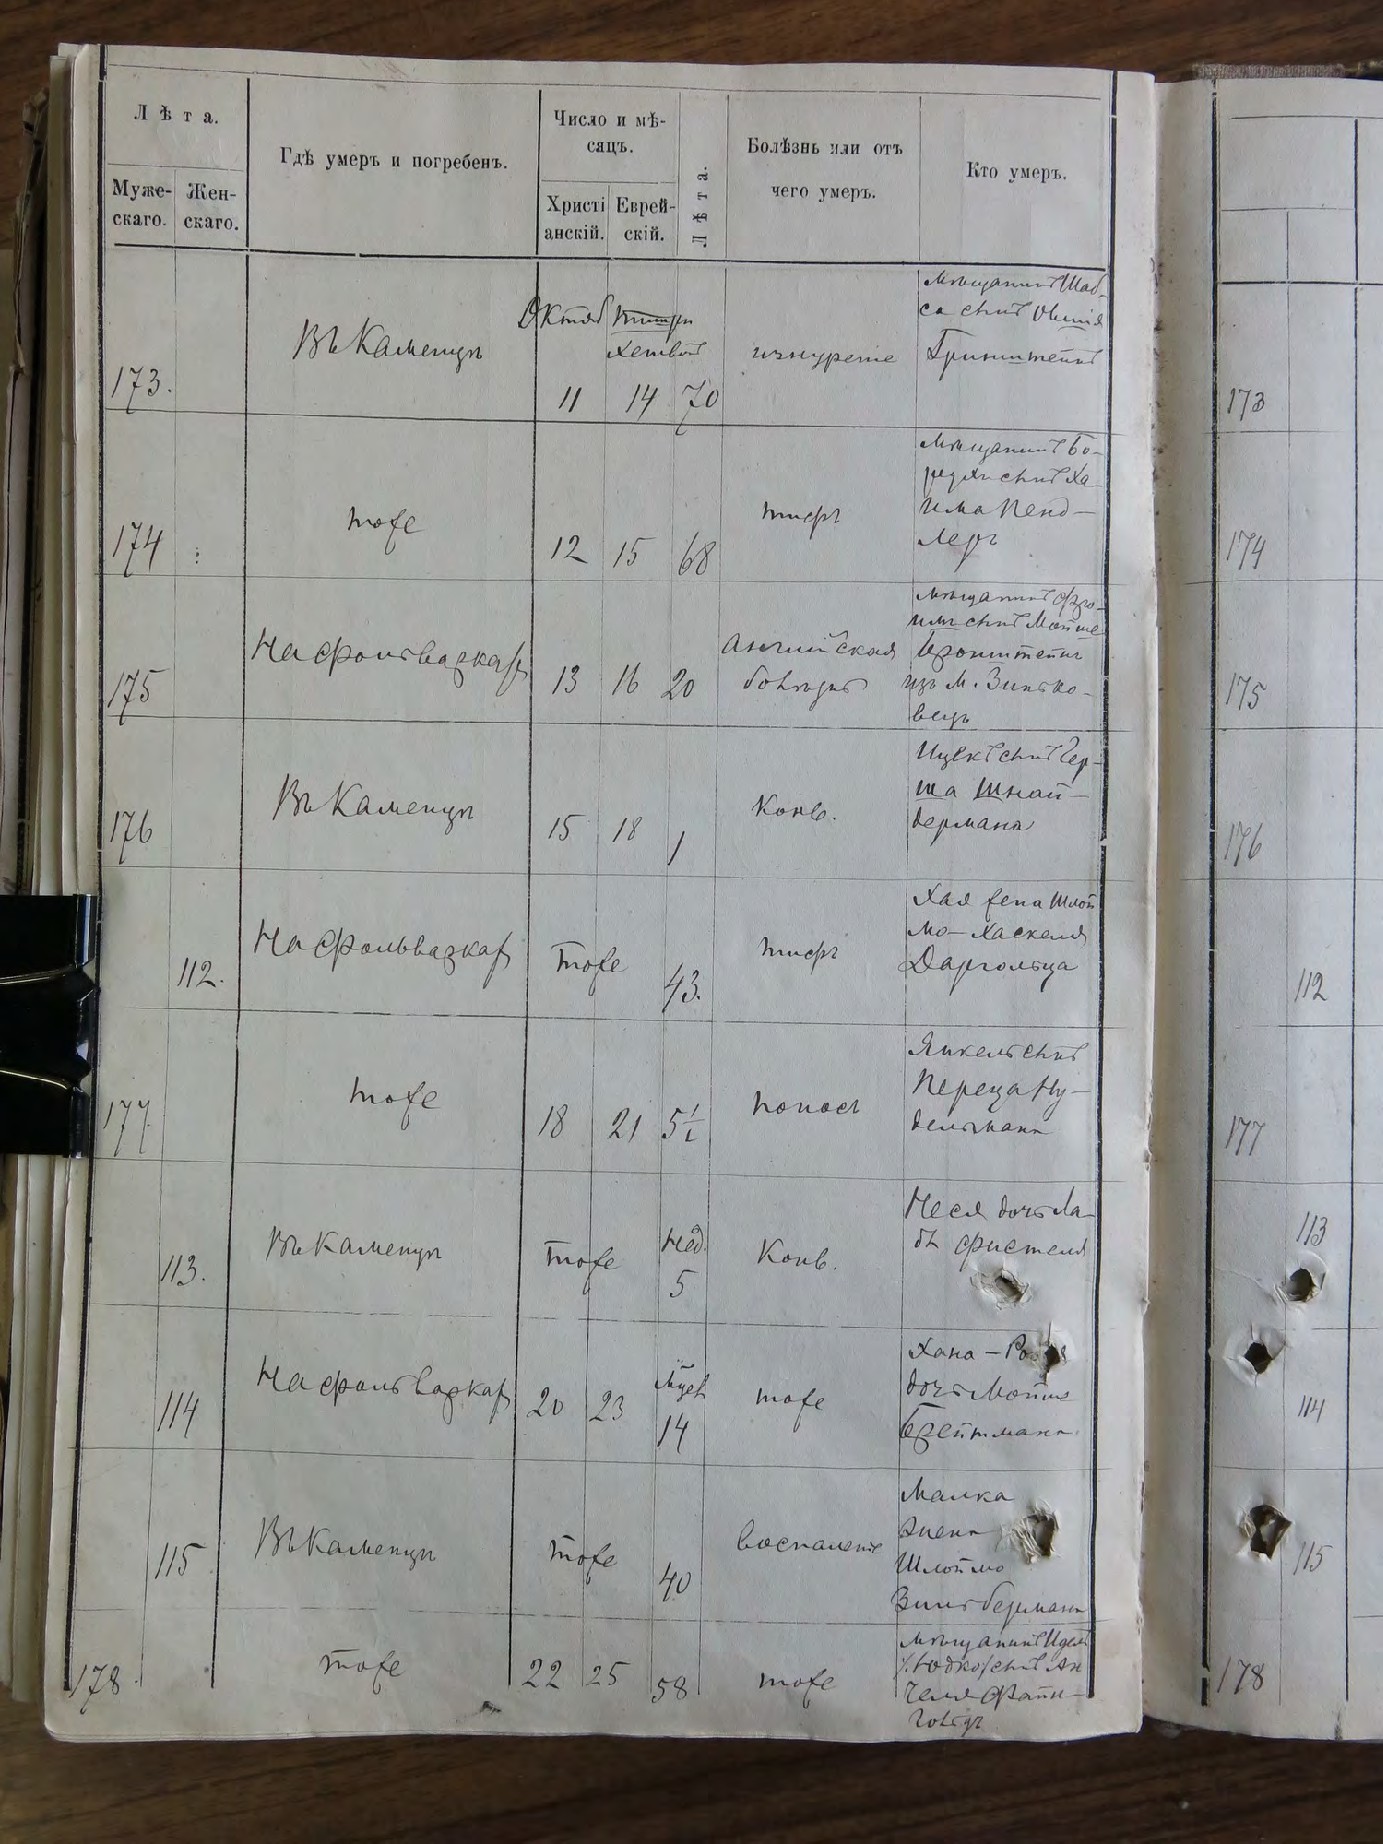 Лѣта.
Муже-
скаго.
Жен-
скаго.
Гдѣ умеръ и погребенъ.
Число и мѣ-
сяцъ.
Христі
анскій.
Еврей-
скій.
Лѣта.
Болѣзнь или отъ
чего умеръ.
Кто умеръ.
173.
Въ Каменцѣ
Октяб
11
Хешвон
14
70
изнуреніе
Мѣщанинъ Шаб-
са сынъ
Гринштейнъ
173
174
тоже
12
15
68
тифъ
Мѣщанинъ Бо-
рухъ сынъ Ха
има Пенд-
леръ
174
175
На фольваркахъ
13
16
20
Английская
болѣзнь
Мѣщанинъ Фро-
имъ сынъ Мойше
Бронштейнъ
изъ М. Зинько-
вецъ
175
176
Въ Каменцѣ
15
18
1
Конв.
Ицекъ сынъ Гер-
ша Шнай-
дермана
176
112.
На фольваркахъ
тоже
43.
тифъ
Хая жена Шлой
мо-Хаскеля
Даргольца
112
177
тоже
18
21
5½
поносъ
Янкель сынъ
Переца Ну-
дельмана
177
113.
Въ Каменцѣ
тоже
нед.
5
Конв.
Неся дочь Ла-
фистеля
113
114
На фольваркахъ
20
23
мѣс
14
тоже
Хана-
дочь Мойше
Брейтмана
114
115
Въ Каменцѣ
тоже
40
воспаленіе
Малка
жена
Шлоймо
Зильбермана
115
178
тоже
22
25
58
тоже
Мѣщанинъ Идель
сынъ Ан
челя Файн-
гольдъ
178